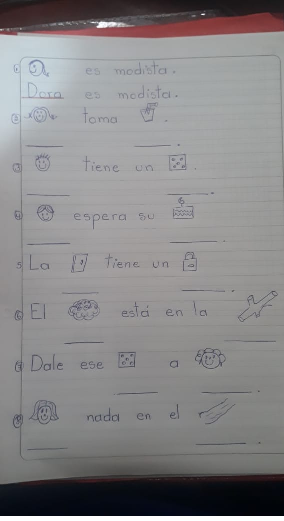 1 es modista.
Dora es modista.
2 toma .
.
3 tiene un .
.
4 espera su
.
5 La tiene un
.
6 El está en la
7 Dale ese a
.
8 nada en el
.